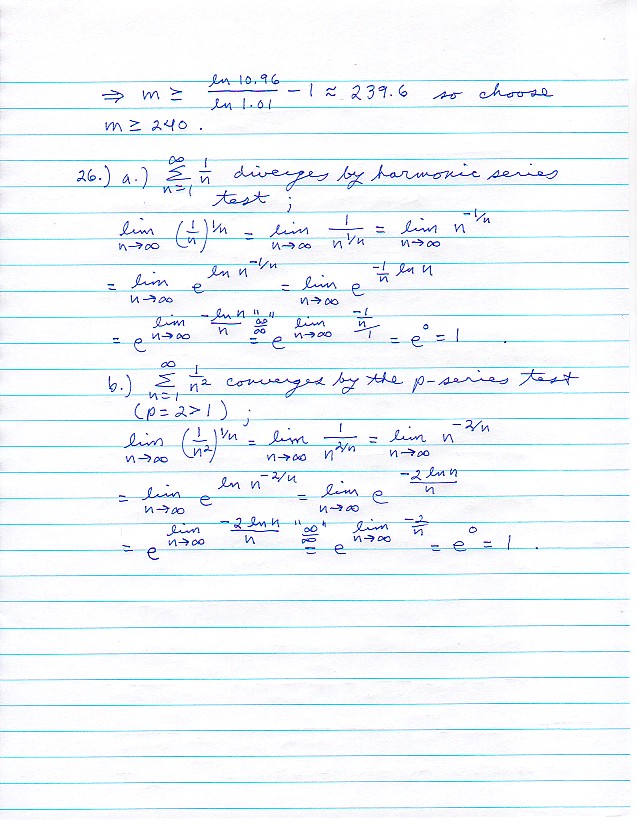 ⇒ m ≥ ln 10.96 / ln 1.01 − 1 ≈ 239.6 so choose
m ≥ 240 .
26.) a.) ∑_{n=1}^{∞} 1/n diverges by harmonic series
test ;
lim_{n→∞} (1/n)^{1/n} = lim_{n→∞} 1/n^{1/n} = lim_{n→∞} n^{-1/n}
= lim_{n→∞} e^{ln n^{-1/n}} = lim_{n→∞} e^{-1/n ln n}
= e^{lim_{n→∞} -ln n/n} "∞/∞" = e^{lim_{n→∞} (-1/n)/1} = e^0 = 1 .
b.) ∑_{n=1}^{∞} 1/n² converges by the p-series test
(p = 2 > 1) ;
lim_{n→∞} (1/n²)^{1/n} = lim_{n→∞} 1/n^{2/n} = lim_{n→∞} n^{-2/n}
= lim_{n→∞} e^{ln n^{-2/n}} = lim_{n→∞} e^{-2 ln n/n}
= e^{lim_{n→∞} -2 ln n/n} "∞/∞" = e^{lim_{n→∞} -2/n} = e^0 = 1 .